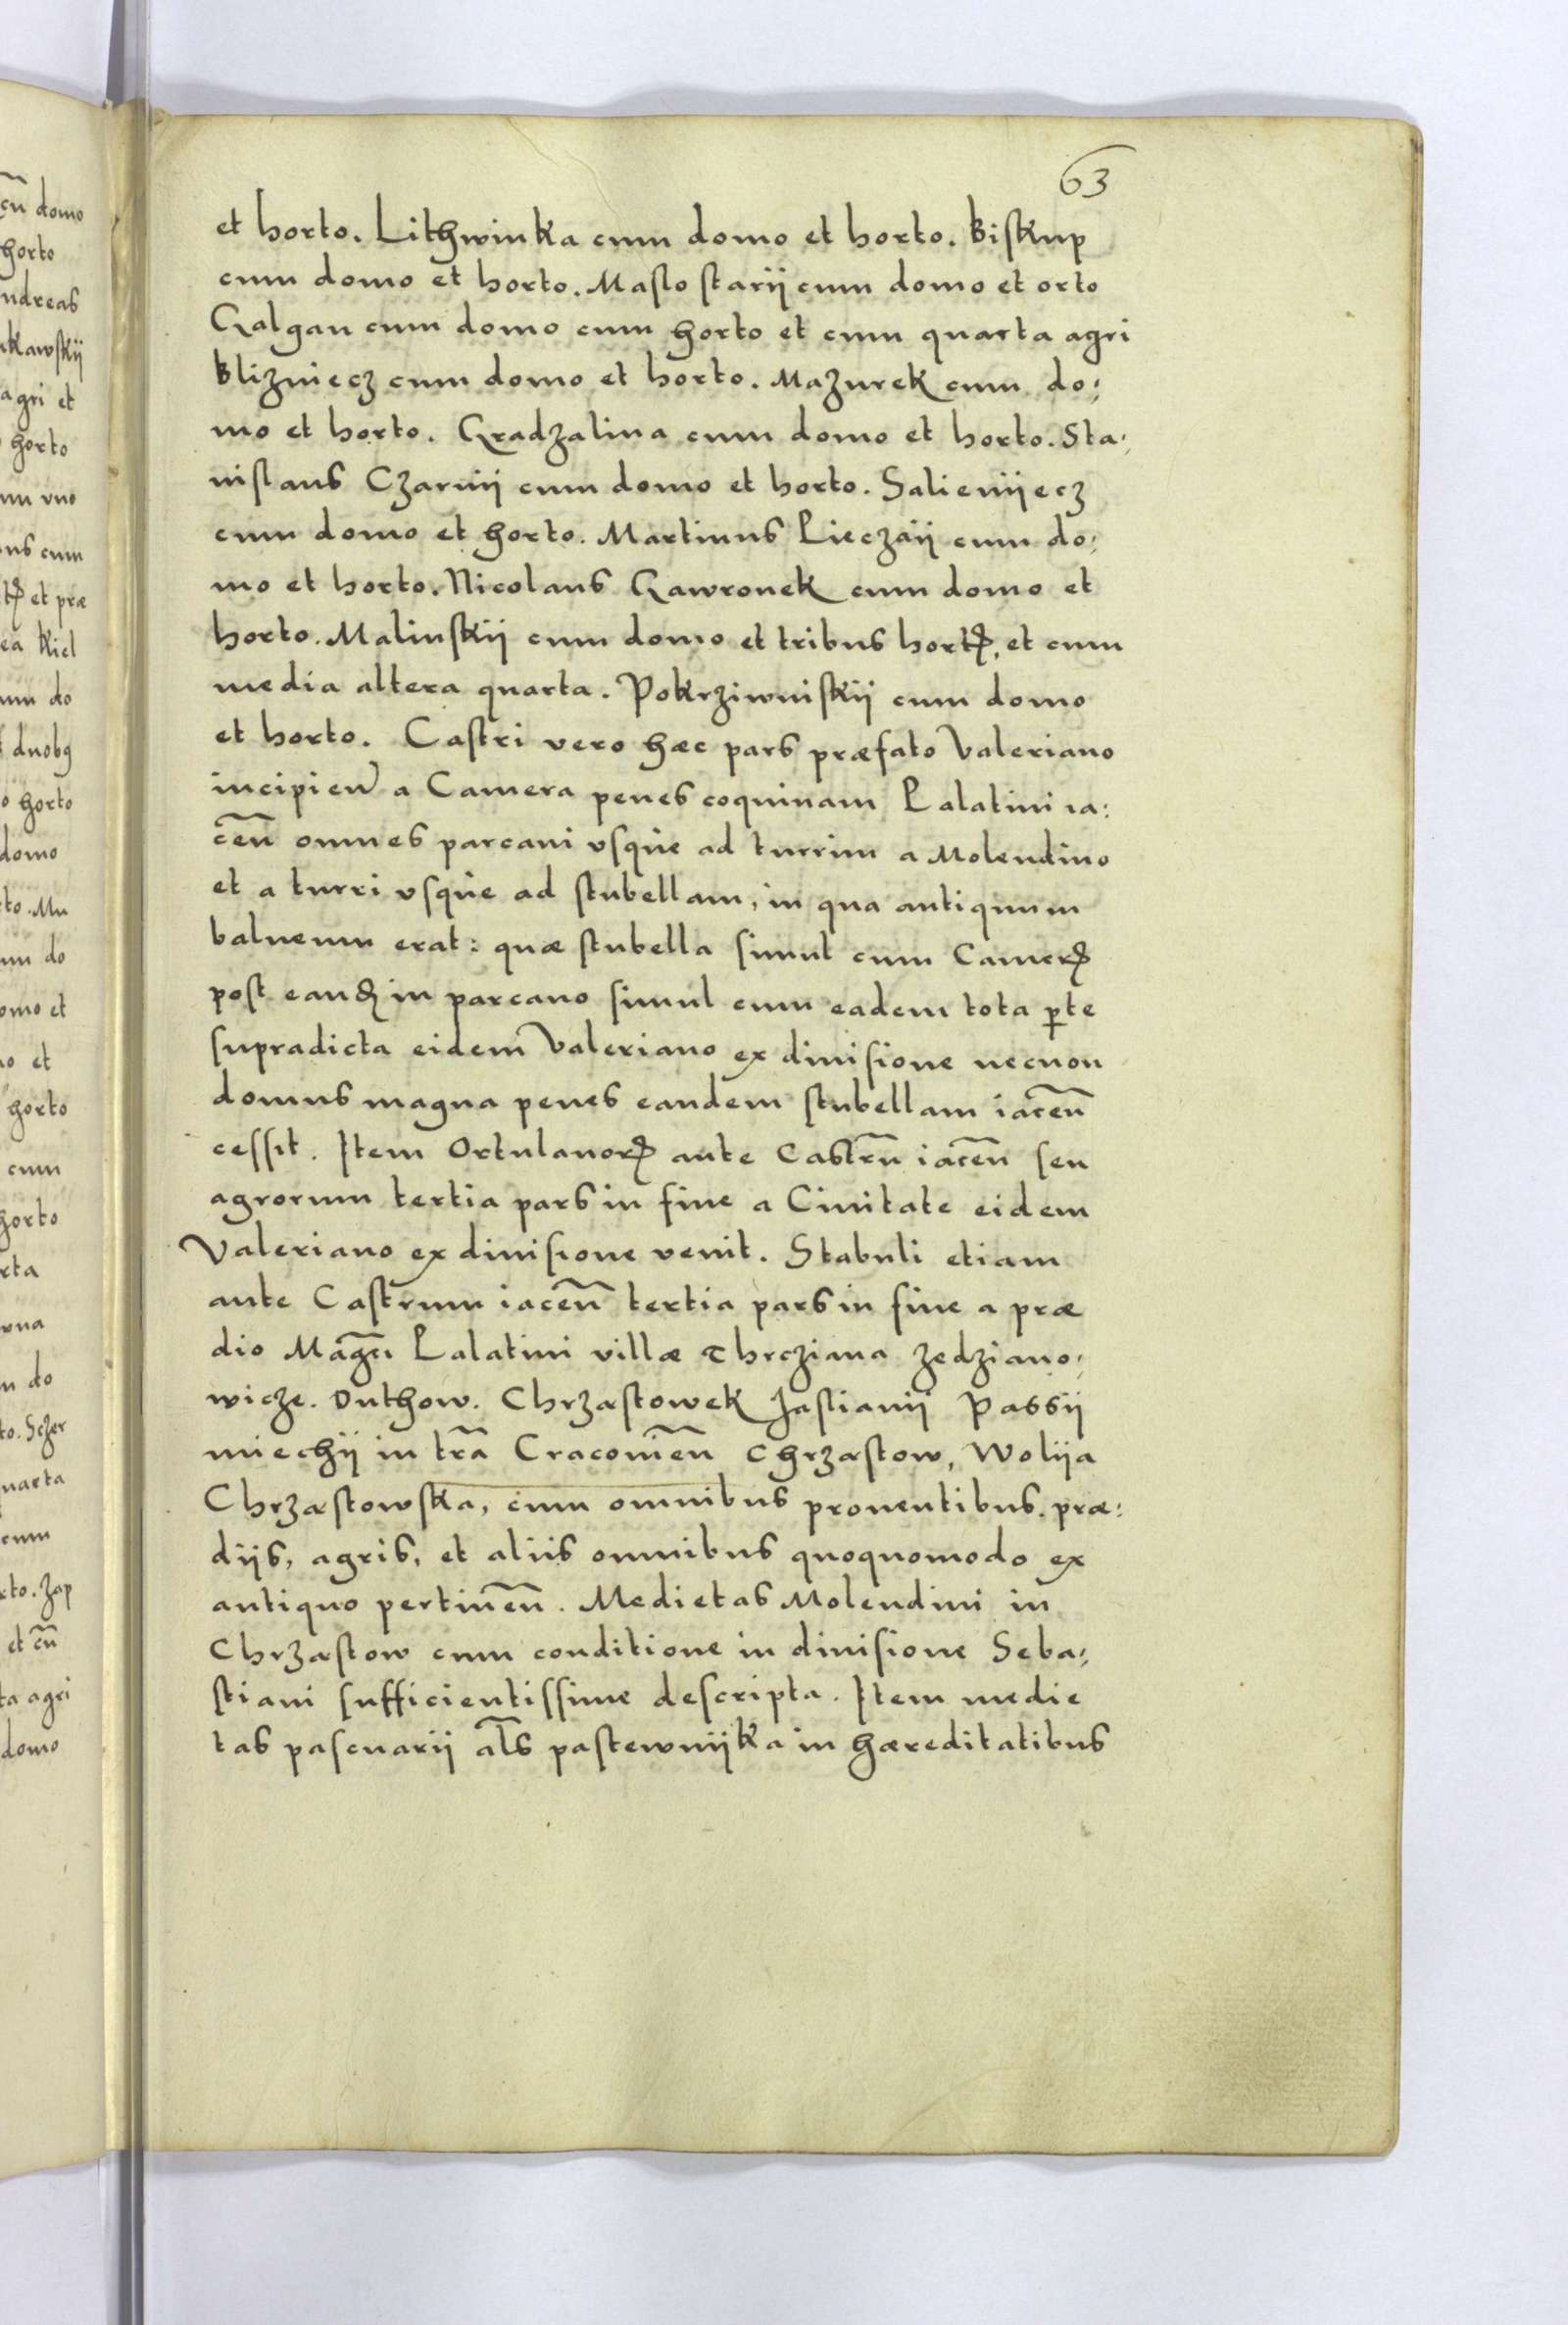 63
et horto. Lithwinka cum domo et horto. Biskup
cum domo et horto. Maslo starÿ cum domo et orto
Galgan cum domo cum horto et cum quarta agri
Blizniecz cum domo et horto. Mazurek cum do:
mo et horto. Gradzalina cum domo et horto. Sta:
nislaus Czarnÿ cum domo et horto. Salienÿecz
cum domo et horto. Martinus Lieczaÿ cum do:
mo et horto. Nicolaus Gawronek cum domo et
horto. Malinskÿ cum domo et tribus hortꝭ, et cum
media altera quarta. Pokrziwniskÿ cum domo
et horto. Castri vero hæc pars præfato Valeriano
incipien̄ a Camera penes coquinam Palatini ia:
cen̄ omnes parcani vsque ad turrim a Molendino
et a turri vsque ad stubellam, in qua antiquum
balneum erat: quæ stubella simul cum Camerꝭ
post eanđ in parcano simul cum eadem tota ꝑte
supradicta eidem Valeriano ex diuisione necnon
domus magna penes eandem stubellam iacen̄
cessit. Item Ortulanorꝭ ante Castrū iacen̄ seu
agrorum tertia pars in fine a Ciuitate eidem
Valeriano ex diuisione venit. Stabuli etiam
ante Castrum iacen̄ tertia pars in fine a præ
dio Magci Palatini villæ Thrcziana Zedziano:
wicze. Duthow. Chrzastowek Jaslianÿ Passÿ
miechÿ in tr̄a Cracouien̄ Chrzastow, Wolÿa
Chrzastowska, cum omnibus prouentibus. præ:
dÿs, agris, et aliis omnibus quoquomodo ex
antiquo pertinen̄. Medietas Molendini in
Chrzastow cum conditione in diuisione Seba:
stiani sufficientissime descripta. Item medie
tas pascuarÿ al̄s pastewnÿka in hæreditatibus